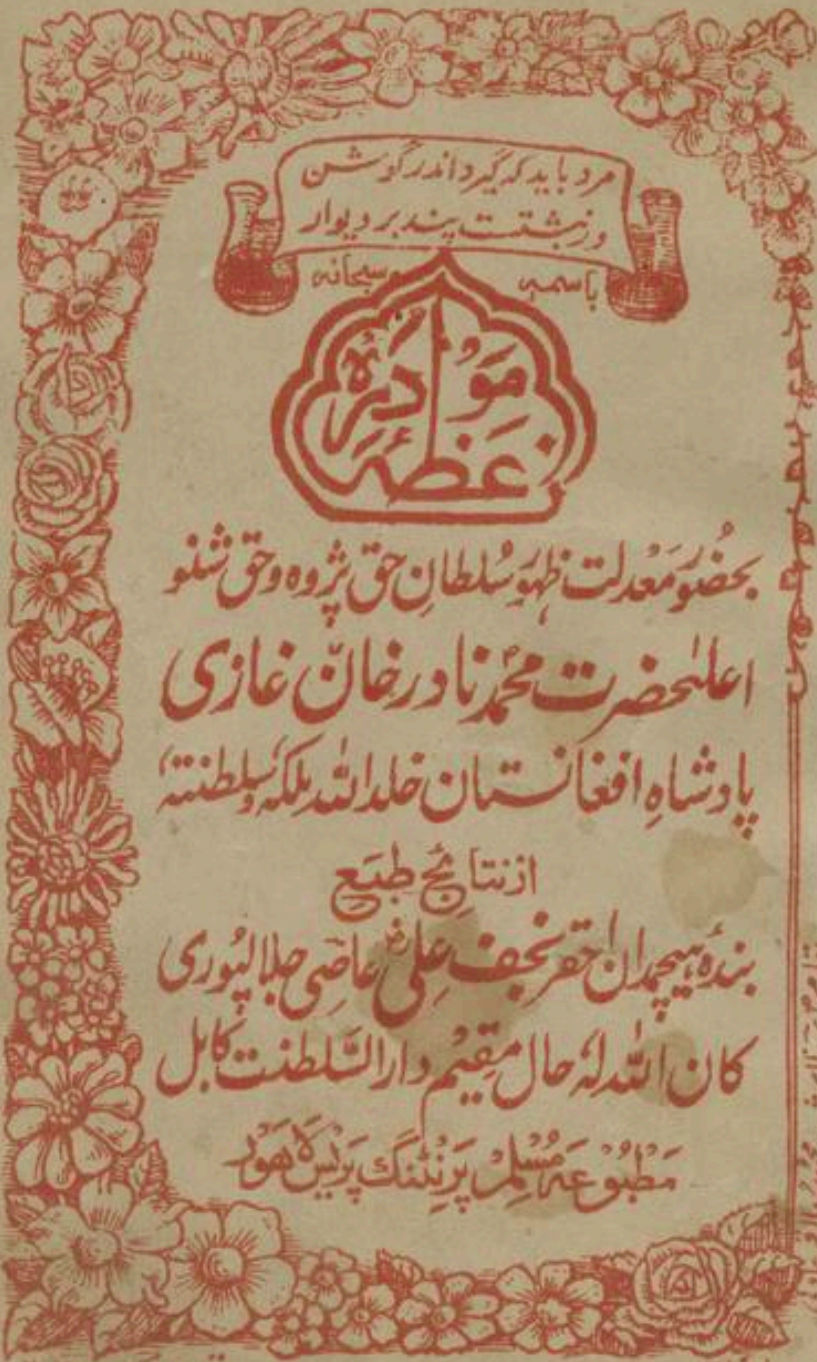 مرد باید که گیرد اندر گوش
ور نبشتست پند بر دیوار
باسمه سبحانه
موعظهٔ نادره
بحضُور مَعدلت ظهورِ سُلطانِ حق پژوه و حق شنو
اعلیٰحضرت محمّد نادر خان غازی
پادشاهِ افغانستان خلد الله ملکهٗ و سلطنتهٗ
از نتائج طبع
بندهٔ هیچمدان احقر نجف علی عاصی جلالپُوری
کان الله لهٗ حال مقیم دار السَّلطنت کابل
مَطبُوعَه مُسلِم پرنِٹنگ پریس لاهور